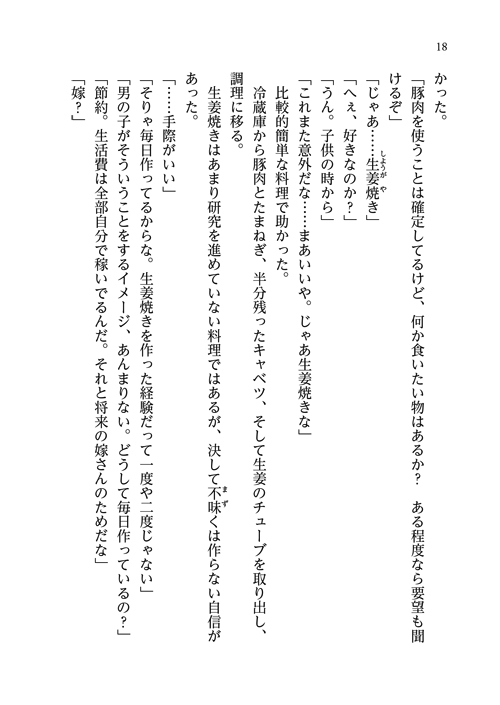 18
かった。
「豚肉を使うことは確定してるけど、何か食いたい物はあるか？　ある程度なら要望も聞
けるぞ」
「じゃあ……生姜焼き」
「へぇ、好きなのか？」
「うん。子供の時から」
「これまた意外だな……まあいいや。じゃあ生姜焼きな」
比較的簡単な料理で助かった。
冷蔵庫から豚肉とたまねぎ、半分残ったキャベツ、そして生姜のチューブを取り出し、
調理に移る。
生姜焼きはあまり研究を進めていない料理ではあるが、決して不味くは作らない自信が
あった。
「……手際がいい」
「そりゃ毎日作ってるからな。生姜焼きを作った経験だって一度や二度じゃない」
「男の子がそういうことをするイメージ、あんまりない。どうして毎日作っているの？」
「節約。生活費は全部自分で稼いでるんだ。それと将来の嫁さんのためだな」
「嫁？」